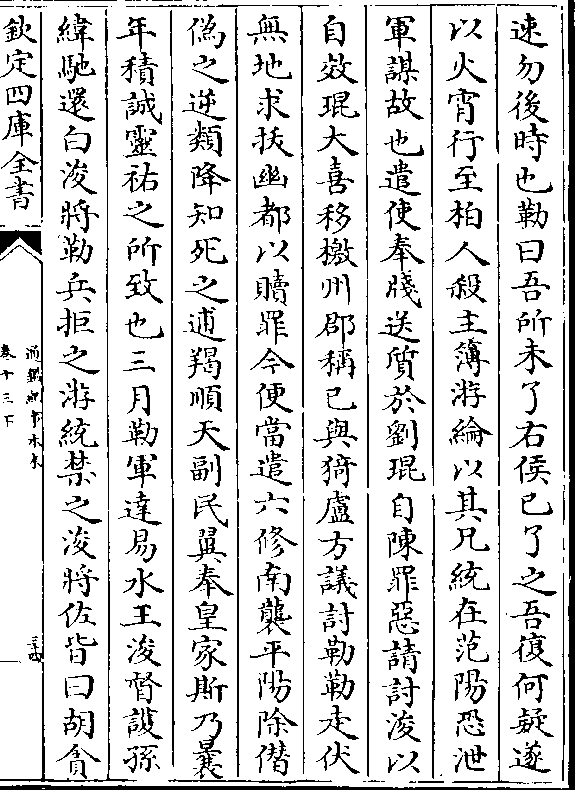 速勿後時也勒曰吾所未了右侯已了之吾復何疑遂
以火宵行至柏人殺主簿游綸以其兄統在范陽恐泄
軍謀故也遣使奉牋送質於劉琨自陳罪惡請討浚以
自效琨大喜移檄州郡稱已與猗盧方議討勒勒走伏
無地求抜幽都以贖罪今便當遣六修南襲平陽除僣
偽之逆類降知死之逋羯順天副民翼奉皇家斯乃曩
年積誠靈祐之所致也三月勒軍達易水王浚督護孫
緯馳還白浚將勒兵拒之游統禁之浚將佐皆曰胡貪
欽定四庫全書
通鑑紀事本末
卷十三下
三十四